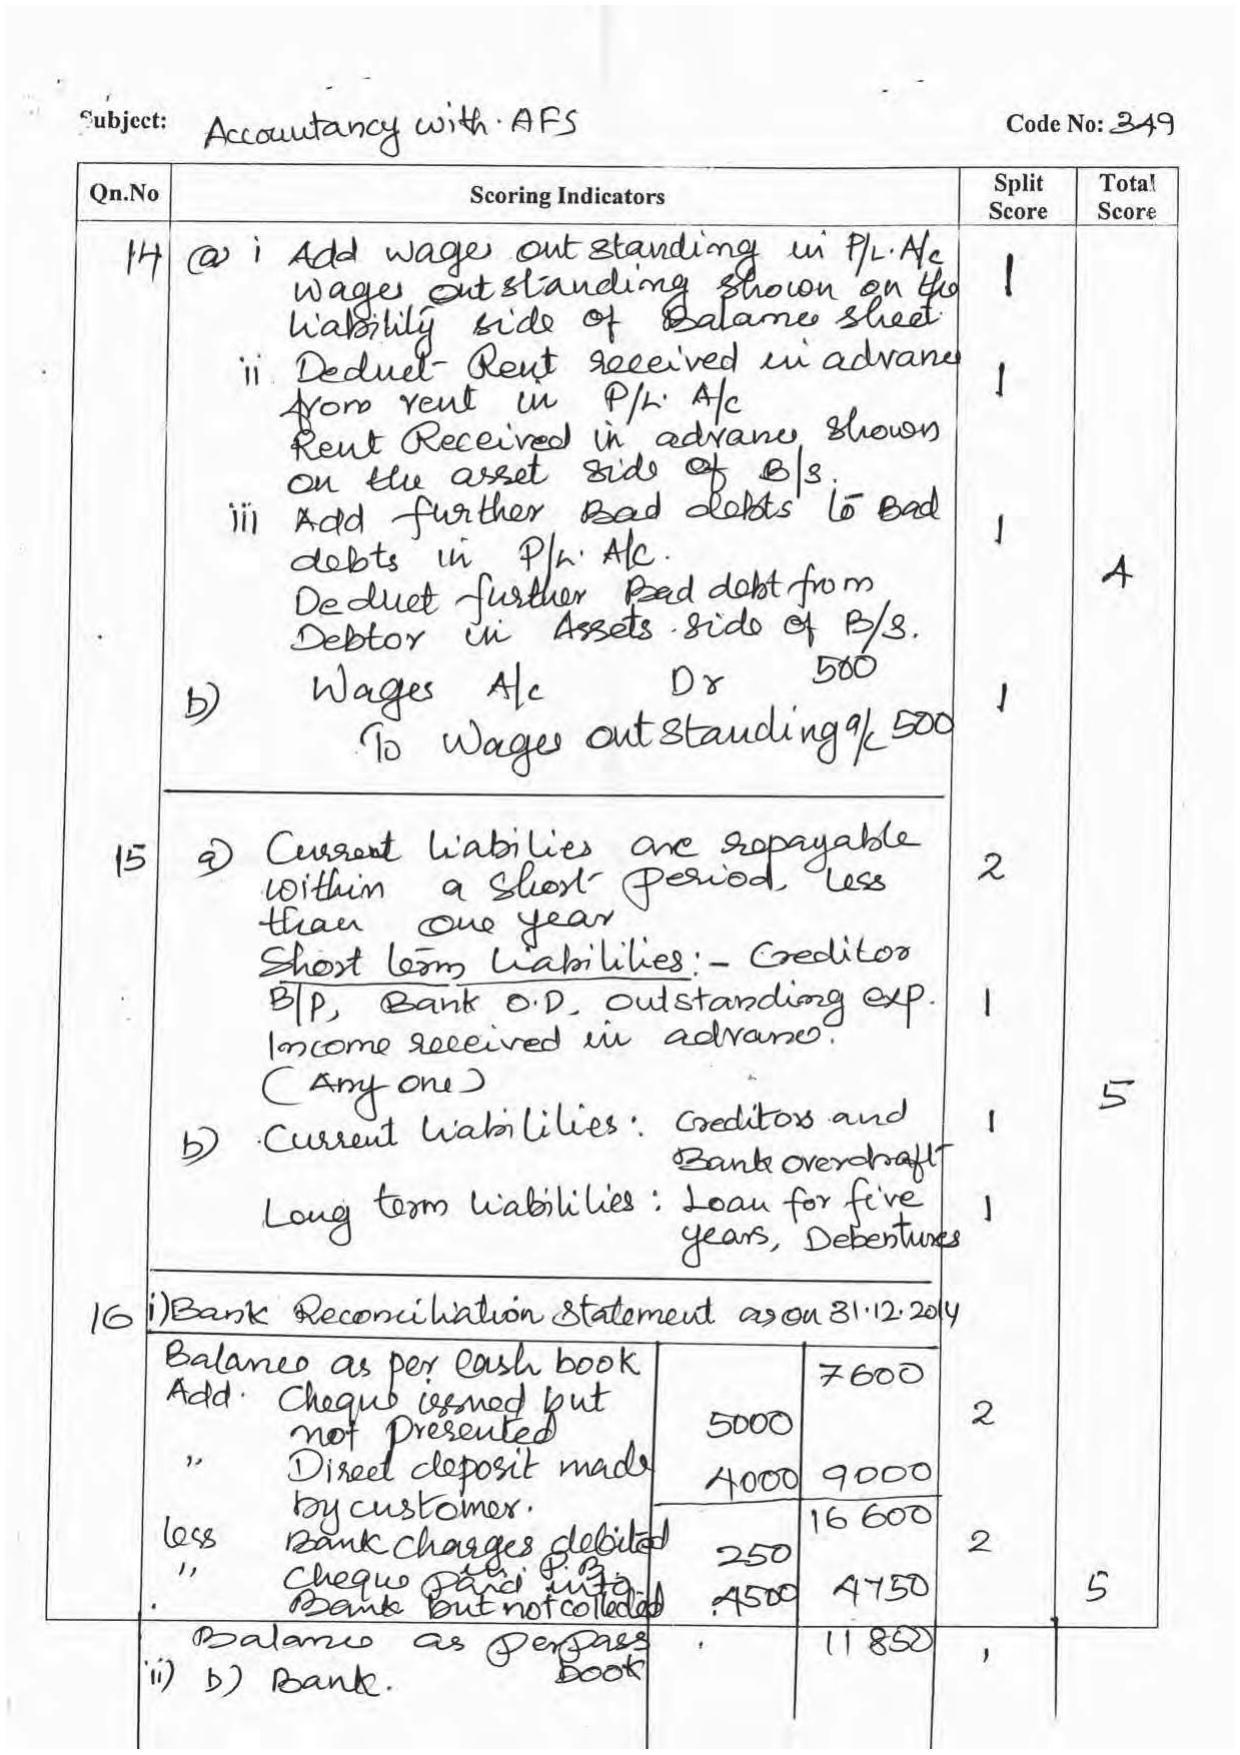 Subject: Accountancy with AFS Code No: 349
Qn.No Scoring Indicators Split Score Total Score
14 a) i Add wages outstanding in P/L. A/c 1
wages outstanding shown on the
liability side of Balance sheet
ii Deduct Rent received in advance 1
from rent in P/L. A/c
Rent Received in advance shown
on the asset side of B/S.
iii Add further Bad debts to Bad 1
debts in P/L. A/c.
4
Deduct further Bad debt from
Debtor in Assets side of B/S.
b) Wages A/c Dr 500 1
To Wages outstanding a/c 500
15 a) Current liabilies are repayable 2
within a short period, less
than one year
Short term liabilities:- Creditor
B/P, Bank O.D, outstanding exp. 1
Income received in advance.
(Any one) 5
b) Current liabilities: Creditors and 1
Bank overdraft
Long term liabilities: Loan for five 1
years, Debentures
16 i) Bank Reconciliation Statement as on 31.12.2014
Balance as per Cash book 7600
Add. Cheque issued but
not presented 5000 2
" Direct deposit made 4000 9000
by customer.
16 600
less Bank charges debited 250 2
in P.B.
" Cheque paid into
Bank but not colleded 4500 4750 5
Balance as per pass 11 850
book
ii) b) Bank.